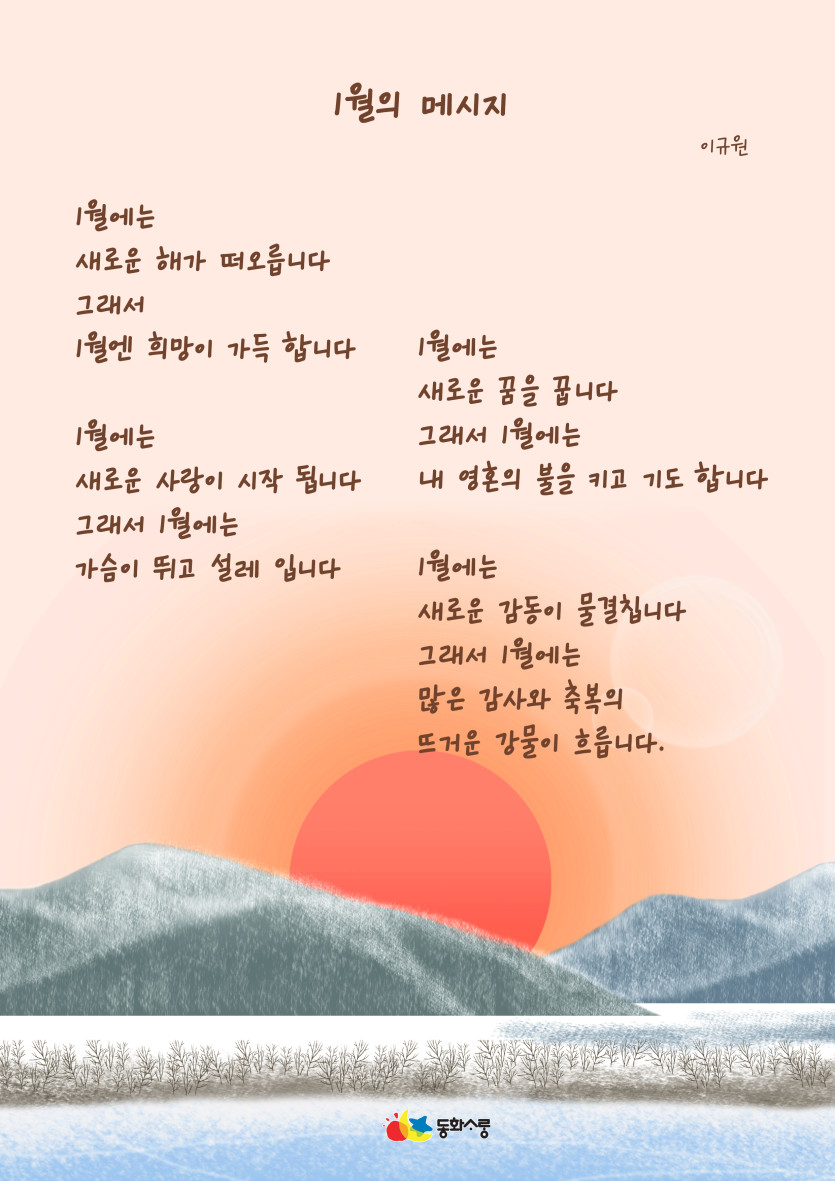 1월의 메시지
이규원
1월에는
새로운 해가 떠오릅니다
그래서
1월엔 희망이 가득 합니다
1월에는
새로운 사랑이 시작 됩니다
그래서 1월에는
가슴이 뛰고 설레 입니다
1월에는
새로운 꿈을 꿉니다
그래서 1월에는
내 영혼의 불을 키고 기도 합니다
1월에는
새로운 감동이 물결칩니다
그래서 1월에는
많은 감사와 축복의
뜨거운 강물이 흐릅니다.
동화스룽